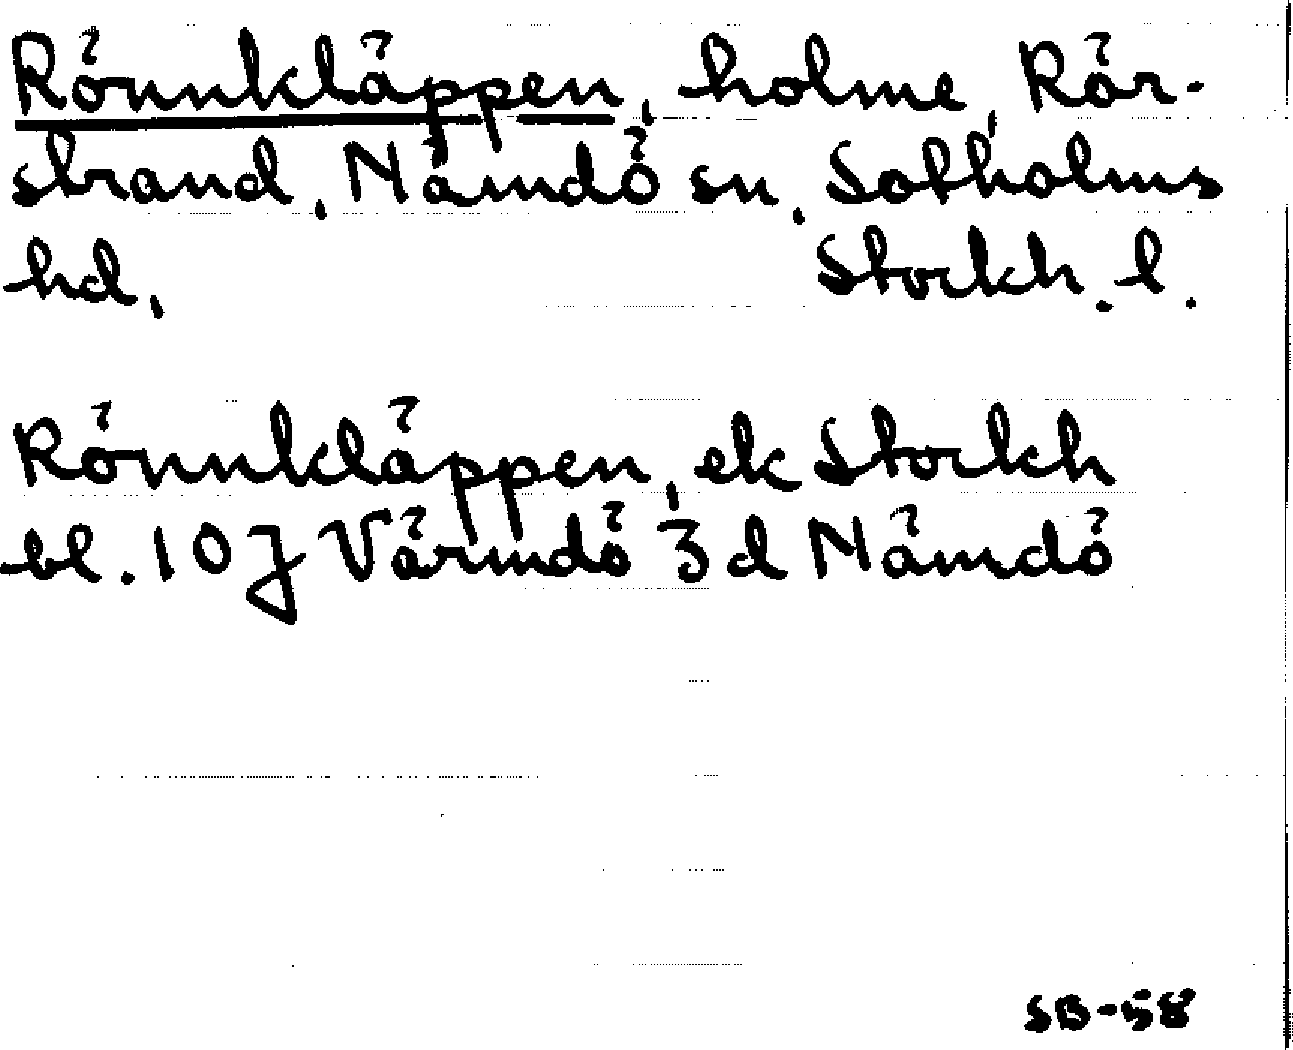 Rönnkläppen, holme, Rör-
strand, Nämdö sn, Sotholms
hd, Stockh. l.
Rönnkläppen, ek Stockh
bl. 10J Värmdö 3d Nämdö
SB-58